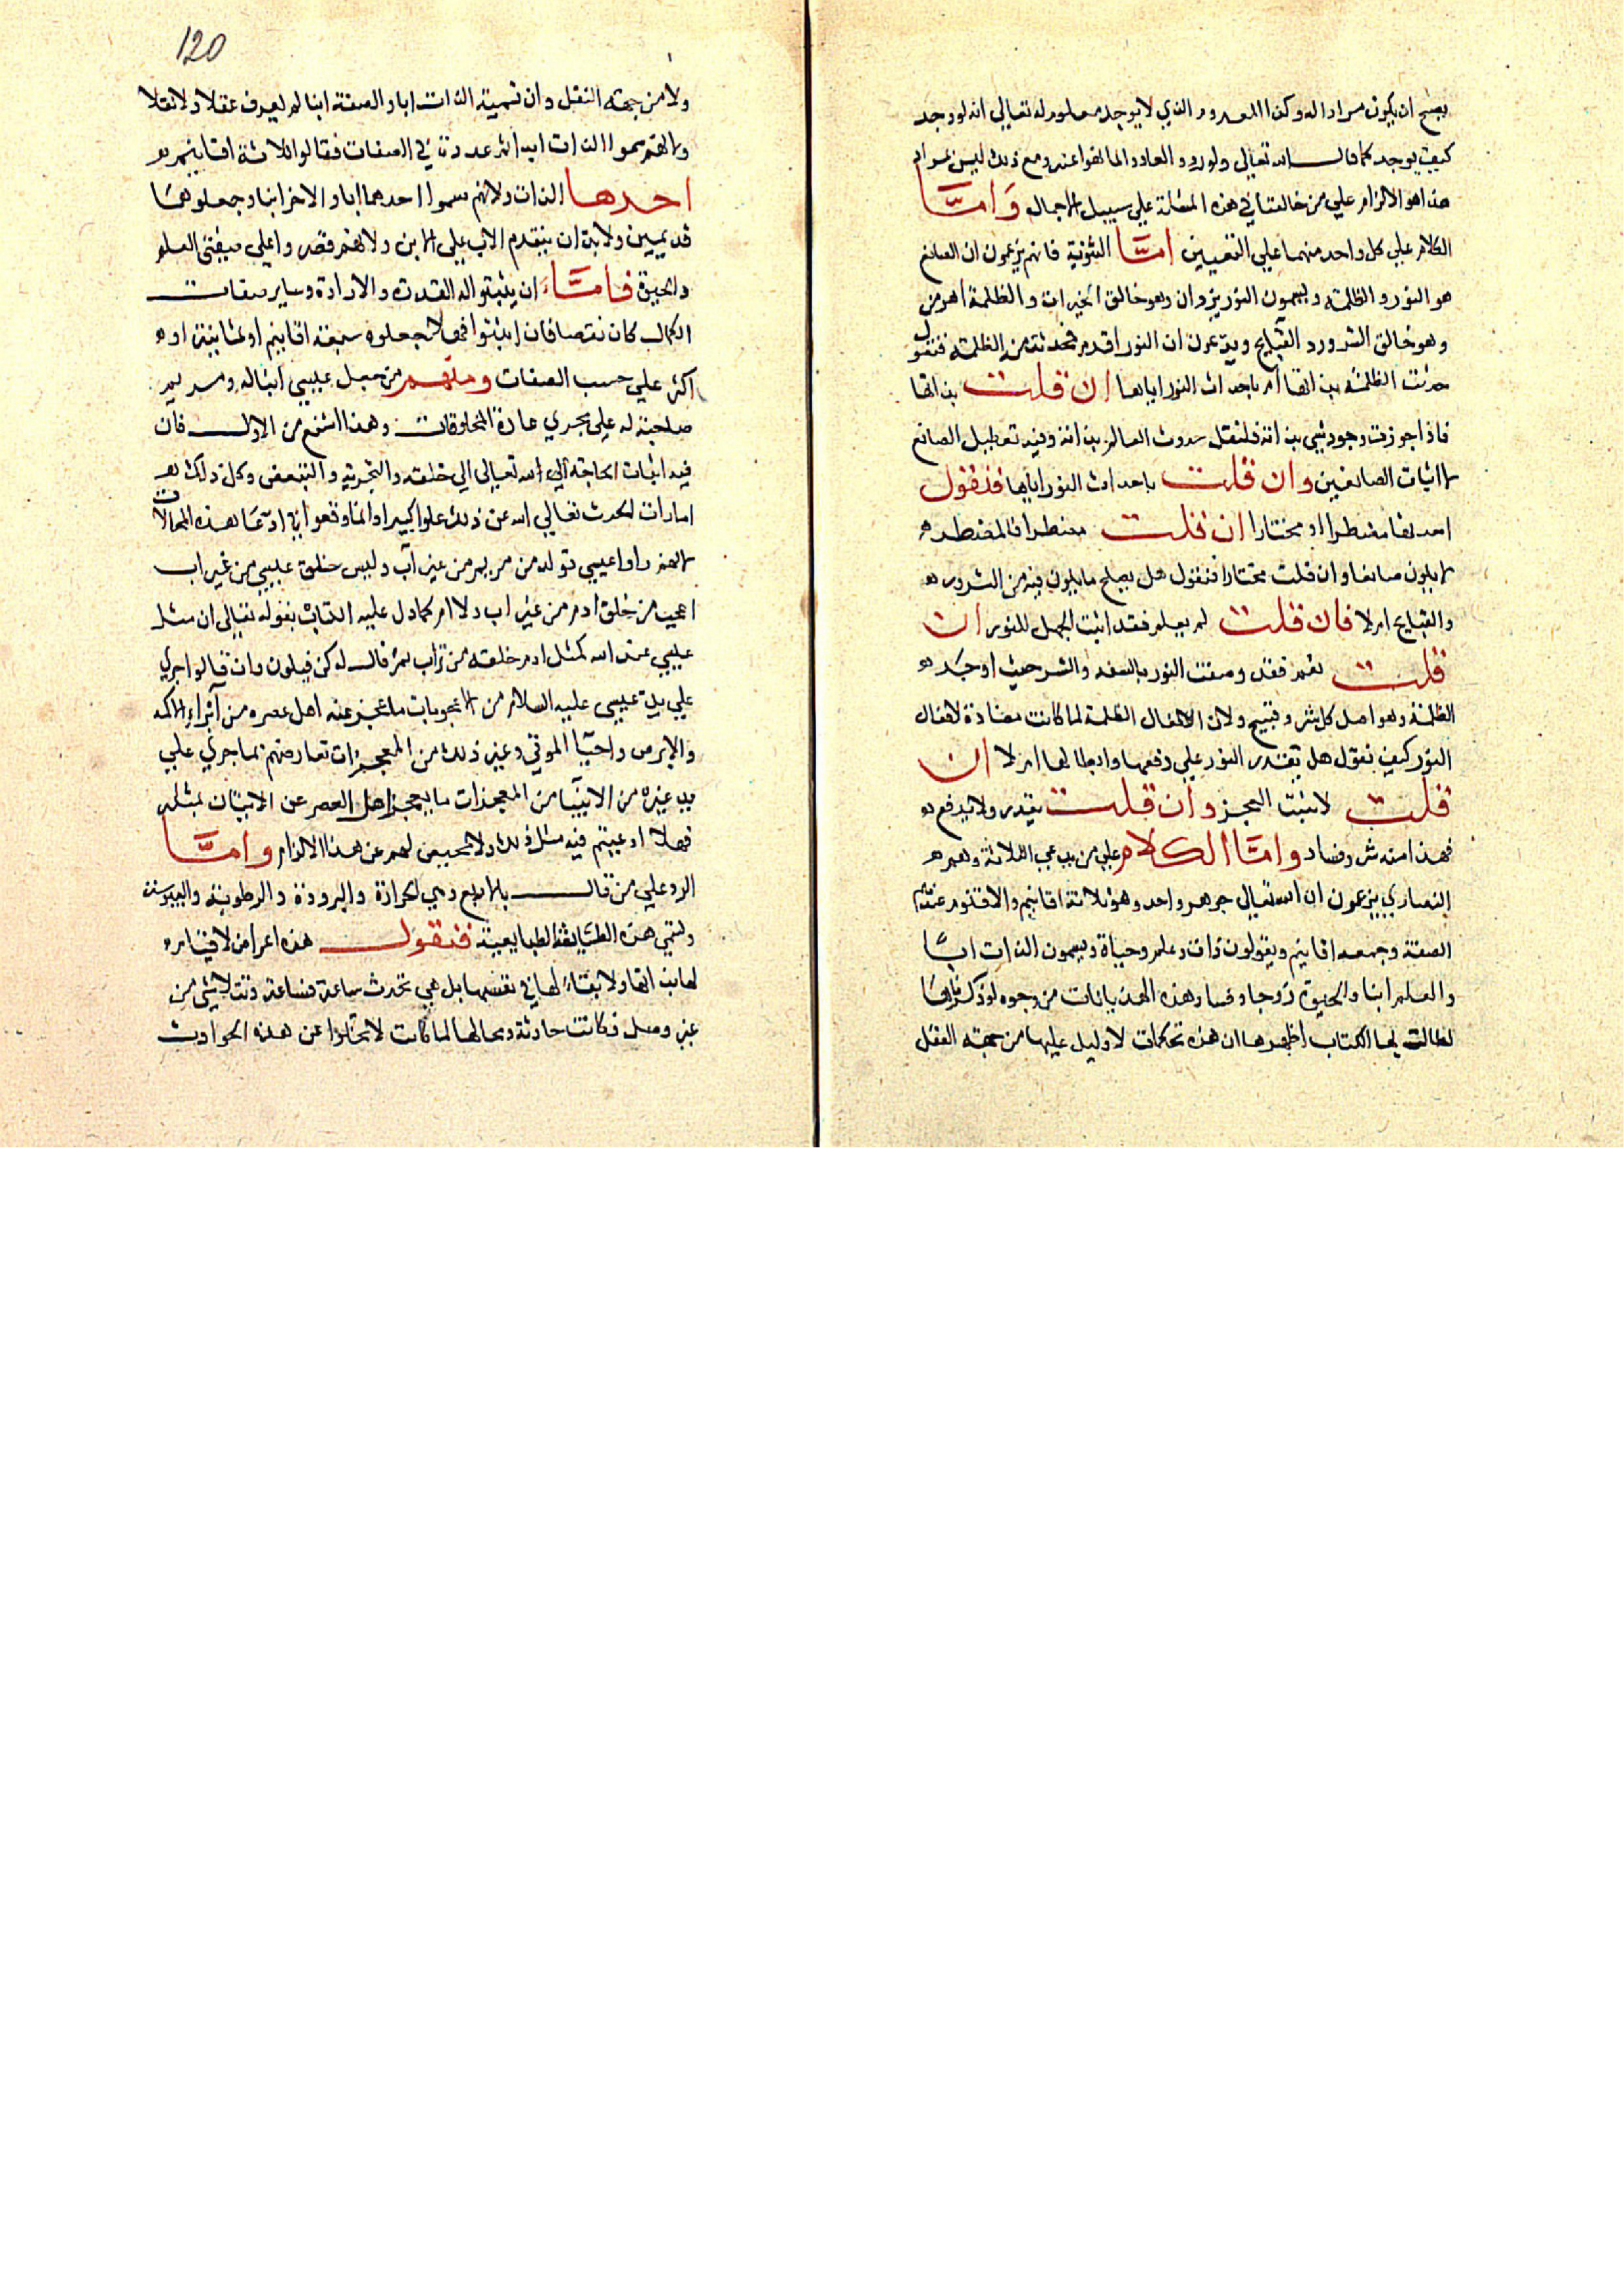 يصح ان يكون مرادا له وكذا المعدوم الذي لا يوجد معلوم له تعالي انه لو وجد
كيف يوجد كما قال الله تعالي ولو ردوا لعادوا لما نهوا عنه ومع ذلك ليس بمراد
هذا هو الالزام علي من خالفنا في هذه المسئلة علي سبيل الاجمال وَامَّا
الكلام علي كل واحد منهما علي التعيين امَّا الثنوية فانهم يزعمون ان الصانع
هو النور والظلمة ويسمون النور يزدان وهو خالق الخيرات والظلمة اهرمن
وهو خالق الشرور والقبايح ويدعون ان النور اقدم فحدثت منه الظلمة فنقول
حدثت الظلمة بذاتها ام باحداث النور اياها ان قلت بذاتها
فاذا جوزت وجود شي بذاته فلنقل حدوث العالم بذاته وفيه تعطيل الصانع
لا اثبات الصانعين وان قلت باحداث النور اياها فنقول
احدثها مضطرا او مختارا ان قلت مضطرا فالمضطر
لا يكون صانعا وان قلت مختارا فنقول هل يعلم ما يكون فيه من الشرور
والقبايح ام لا فان قلت لم يعلم فقد اثبت الجهل للنور ان
قلت نعم فقد وصفت النور بالسفه والشر حيث اوجد
الظلمة وهو اصل كل شر وقبيح ولان الافعال الظلمة لما كانت مضادة لافعال
النور كيف نقول هل يقدر النور علي دفعها وابطالها ام لا ان
قلت لا تثبت العجز وان قلت يقدر ولا يدفع
فهذا منه شر وفساد وامَّا الكلام علي من يدعي الثلاثة وهم
النصاري يزعمون ان الله تعالي جوهر واحد وهو ثلاثة اقانيم والاقنوم عندهم
الصفة وجمعه اقانيم ويقولون ذات وعلم وحياة ويسمون الذات ابًا
والعلم ابنا والحيوة زوجا وفساد هذه الهذيانات من وجوه لو ذكرناها
لطالت بها الكتاب اظهرها ان هذه تحكمات لا دليل عليها من جهة العقل
120
ولا من جهة النقل وان تسمية الذات ابا والصفة ابنا لم يعرف عقلا ولا نقلا
ولانهم سموا الذات ابدا ثم عددته في الصفات فقالوا ثلاثة اقانيم
احدها الذات ولانهم سموا احدهما ابا والاخر ابنا وجعلوهما
قديمين ولا بد ان يتقدم الاب علي الابن ولانهم قصروا علي صفتي العلم
والحيوة فامَّا ان يثبتوا له القدرة والارادة وساير صفات
الكمال كان نقصا فان اثبتوا فهلا جعلوه سبعة اقانيم او ثمانية او
اكثر علي حسب الصفات ومنهم من جعل عيسي ابنا له ومريم
صاحبة له علي مجري عادة المخلوقات وهذا اشنع من الاول فان
فيه اثبات الحاجة الي الله تعالي الي خلقه والتجزية والتبعض وكل ذلك
امارات الحدث تعالي الله عن ذلك علوا كبيرا وانما وقعوا في ادعا هذه المحالات
لانهم راوا عيسي تولد من مريم من غير اب وليس خلق عيسي من غير اب
اعجب من خلق ادم من غير اب ولا ام كما دل عليه الكتاب بقوله تعالي ان مثل
عيسي عند الله كمثل ادم خلقه من تراب ثم قال له كن فيكون وان قالوا جري
علي يد عيسي عليه السلام من الاعجوبات ما عجز عنه اهل عصره من ابراء الاكمه
والابرص واحيا الموتي وغير ذلك من المعجزات نعارضهم بما جري علي
يد غيره من الانبيا من المعجزات ما يعجز اهل العصر عن الاتيان بمثله
فهلا ادعيتم فيه مثل ذلك ولا محيص لهم عن هذا الالزام وامَّا
الرد علي من قال بالاربع وهي الحرارة والبرودة والرطوبة واليبوسة
وتسمي هذه الطايفة الطبايعية فنقول هذه اعراض لا قيام
لها بذاتها ولا بقاء لها في نفسها بل هي تحدث ساعة فساعة وتتلاشي من
غير وصل فكانت حادثة ومحالها لما كانت لا تخلوا عن هذه الحوادث